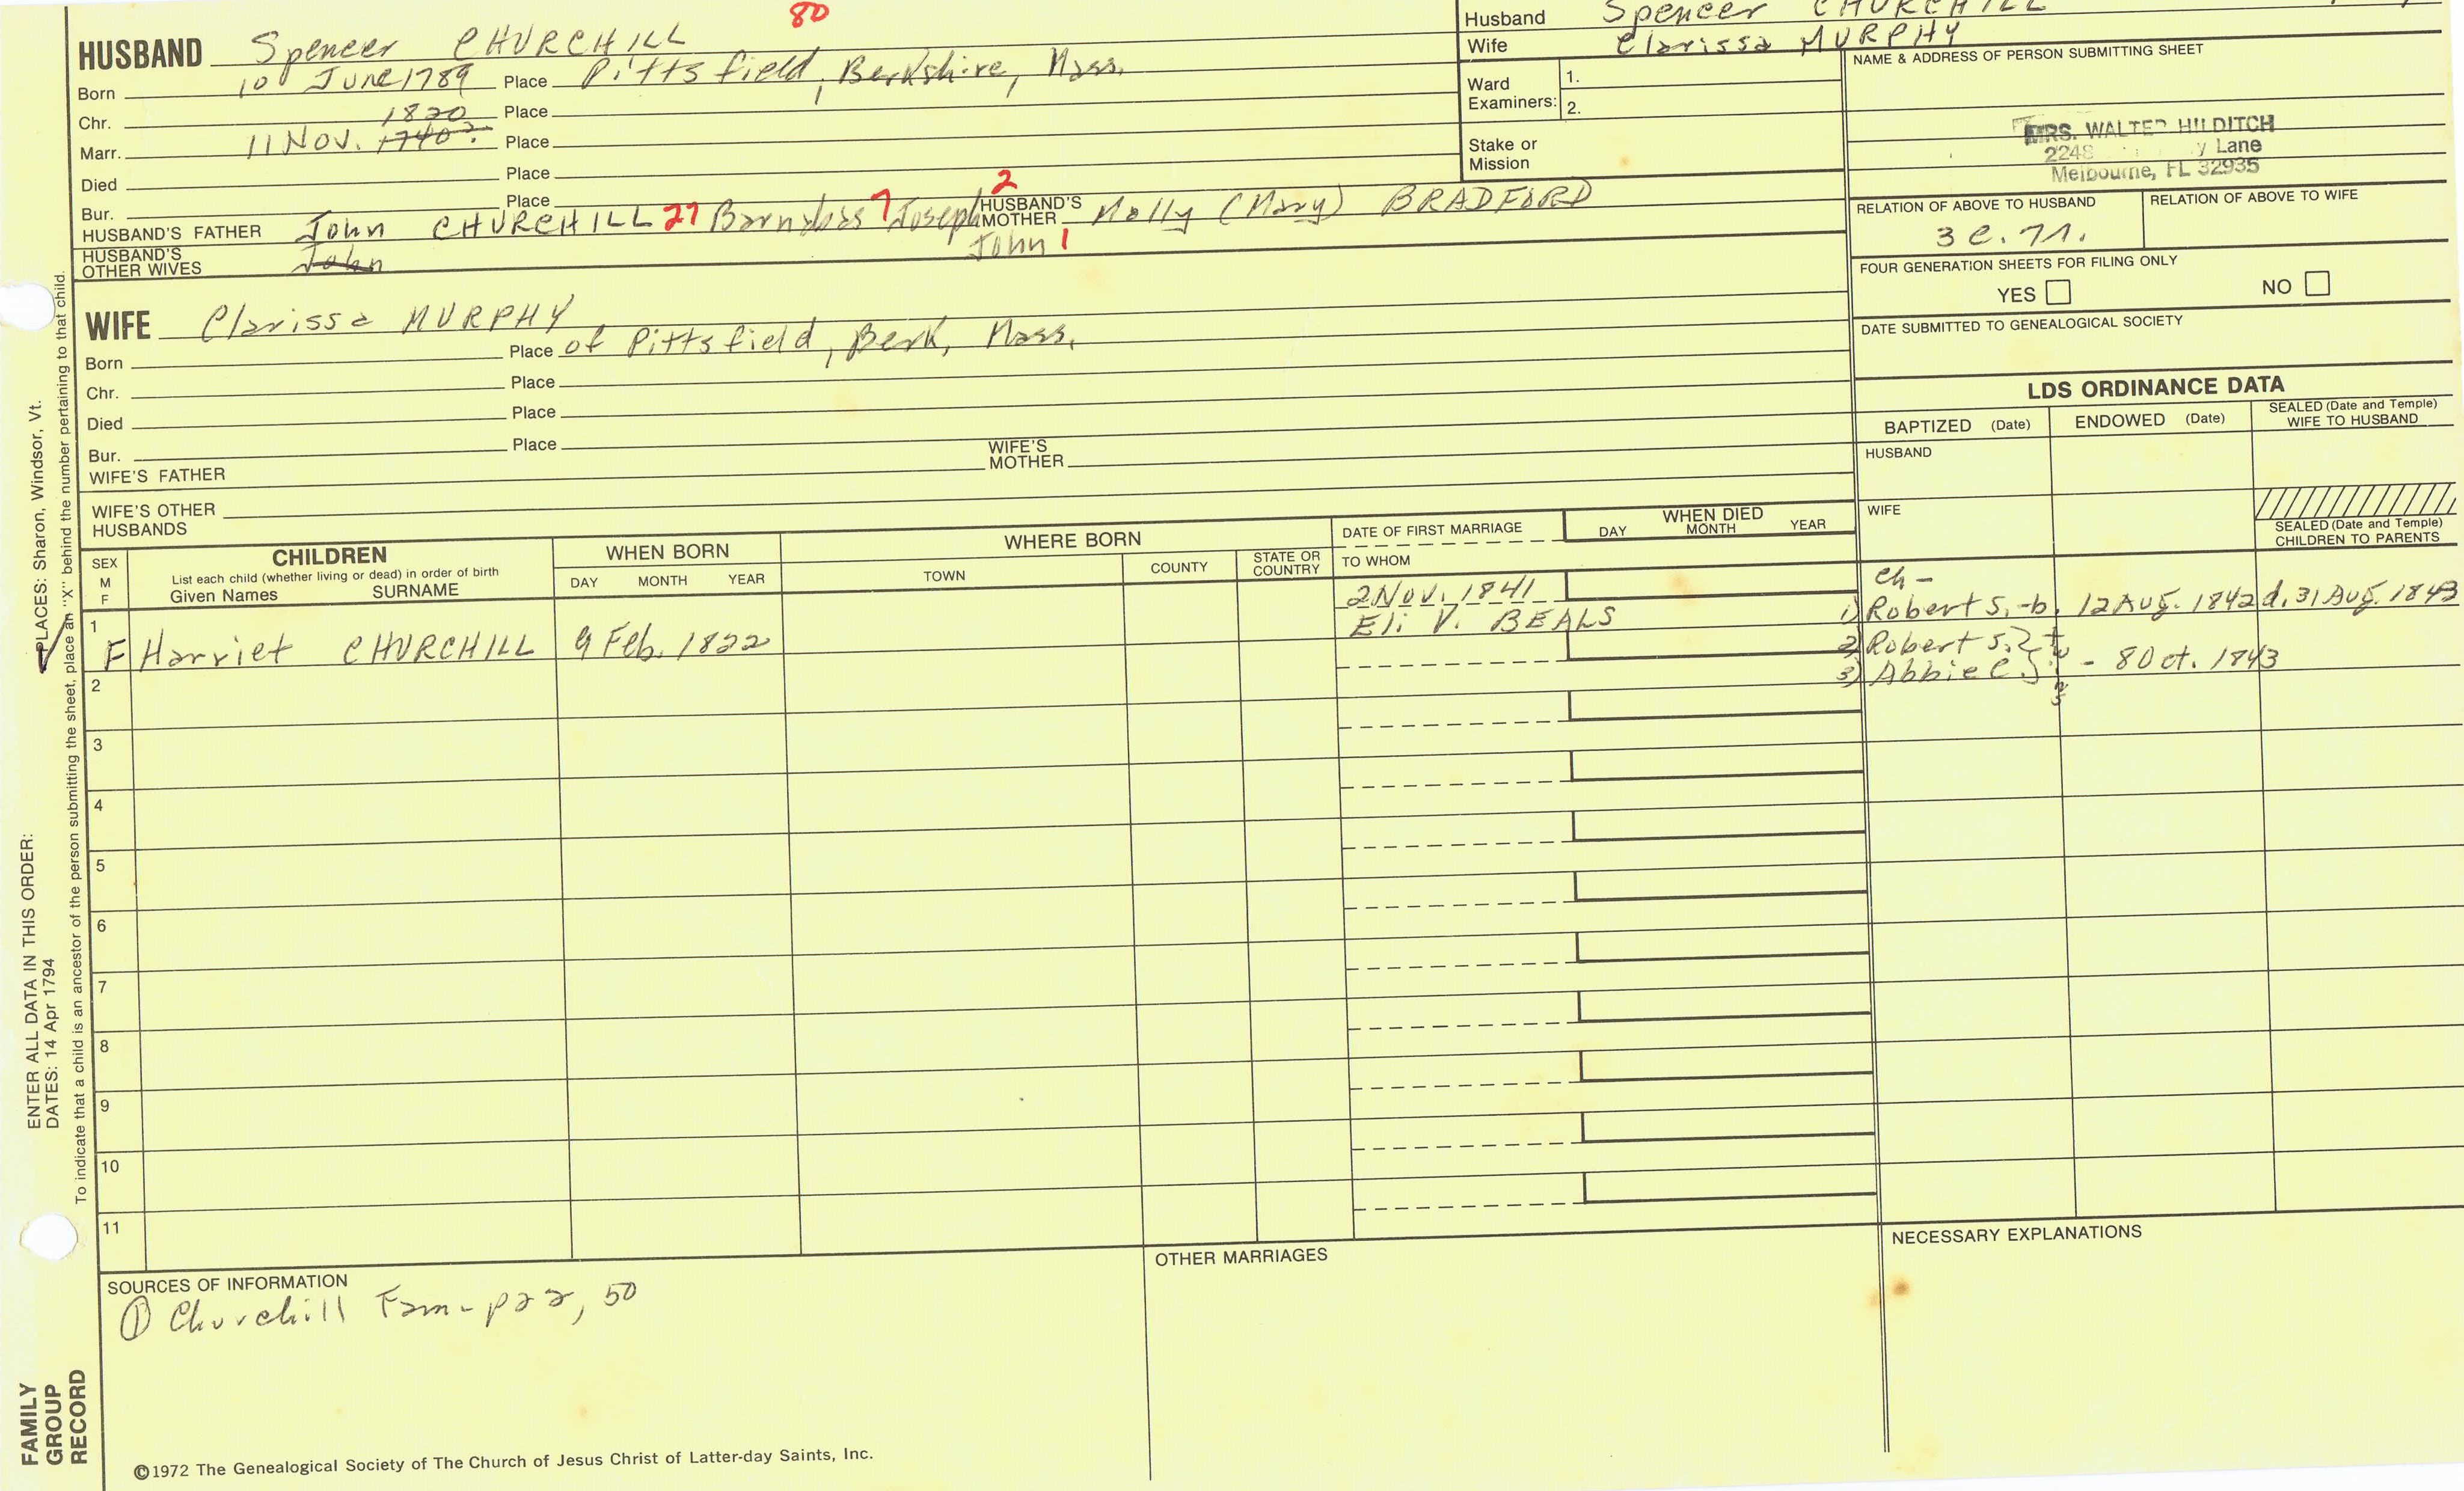 80
HUSBAND Spencer CHURCHILL
Born 10 June 1789 Place Pittsfield, Berkshire, Mass.
Chr. Place
1820
Marr. 11 Nov. 1740? Place
Died Place
Bur. Place
HUSBAND'S FATHER John CHURCHILL 27 Barnabas 7 Joseph 2 HUSBAND'S MOTHER Molly (Mary) BRADFORD
John 1
HUSBAND'S OTHER WIVES John
WIFE Clarissa MURPHY
Born Place of Pittsfield, Berk, Mass.
Chr. Place
Died Place
Bur. Place
WIFE'S FATHER WIFE'S MOTHER
WIFE'S OTHER HUSBANDS
Husband Spencer CHURCHILL
Wife Clarissa MURPHY
Ward Examiners: 1.
2.
Stake or Mission
NAME & ADDRESS OF PERSON SUBMITTING SHEET
MRS. WALTER HILDITCH
2248 y Lane
Melbourne, FL 32935
RELATION OF ABOVE TO HUSBAND RELATION OF ABOVE TO WIFE
FOUR GENERATION SHEETS FOR FILING ONLY
YES NO
DATE SUBMITTED TO GENEALOGICAL SOCIETY
LDS ORDINANCE DATA
BAPTIZED (Date) ENDOWED (Date) SEALED (Date and Temple) WIFE TO HUSBAND
HUSBAND
WIFE
SEALED (Date and Temple) CHILDREN TO PARENTS
SEX M F
CHILDREN
List each child (whether living or dead) in order of birth
Given Names SURNAME
WHEN BORN
DAY MONTH YEAR
WHERE BORN
TOWN COUNTY STATE OR COUNTRY
DATE OF FIRST MARRIAGE
TO WHOM
WHEN DIED
DAY MONTH YEAR
1 F Harriet CHURCHILL 9 Feb. 1822
2 Nov. 1841
Eli V. BEALS
ch -
1) Robert S. -b. 12 Aug. 1842 d. 31 Aug. 1843
2) Robert S.
3) Abbie C. twins - 8 Oct. 1843
2
3
4
5
6
7
8
9
10
11
SOURCES OF INFORMATION
① Churchill Fam - p 22, 50
OTHER MARRIAGES
NECESSARY EXPLANATIONS
©1972 The Genealogical Society of The Church of Jesus Christ of Latter-day Saints, Inc.
FAMILY GROUP RECORD
ENTER ALL DATA IN THIS ORDER:
DATES: 14 Apr 1794
PLACES: Sharon, Windsor, Vt.
To indicate that a child is an ancestor of the person submitting the sheet, place an "X" behind the number pertaining to that child.